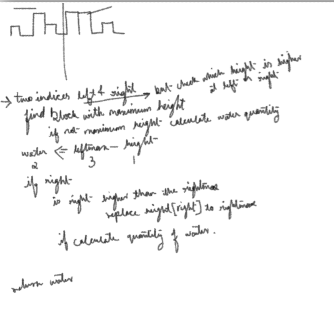 → two indices left & right → but check which height is higher
at left or right
find block with maximum height
if not maximum right calculate water quantity
water <= leftmax - height
2 3 1
if right
is right higher than the rightmax
replace height[right] to rightmax
if calculate quantity of water.
return water